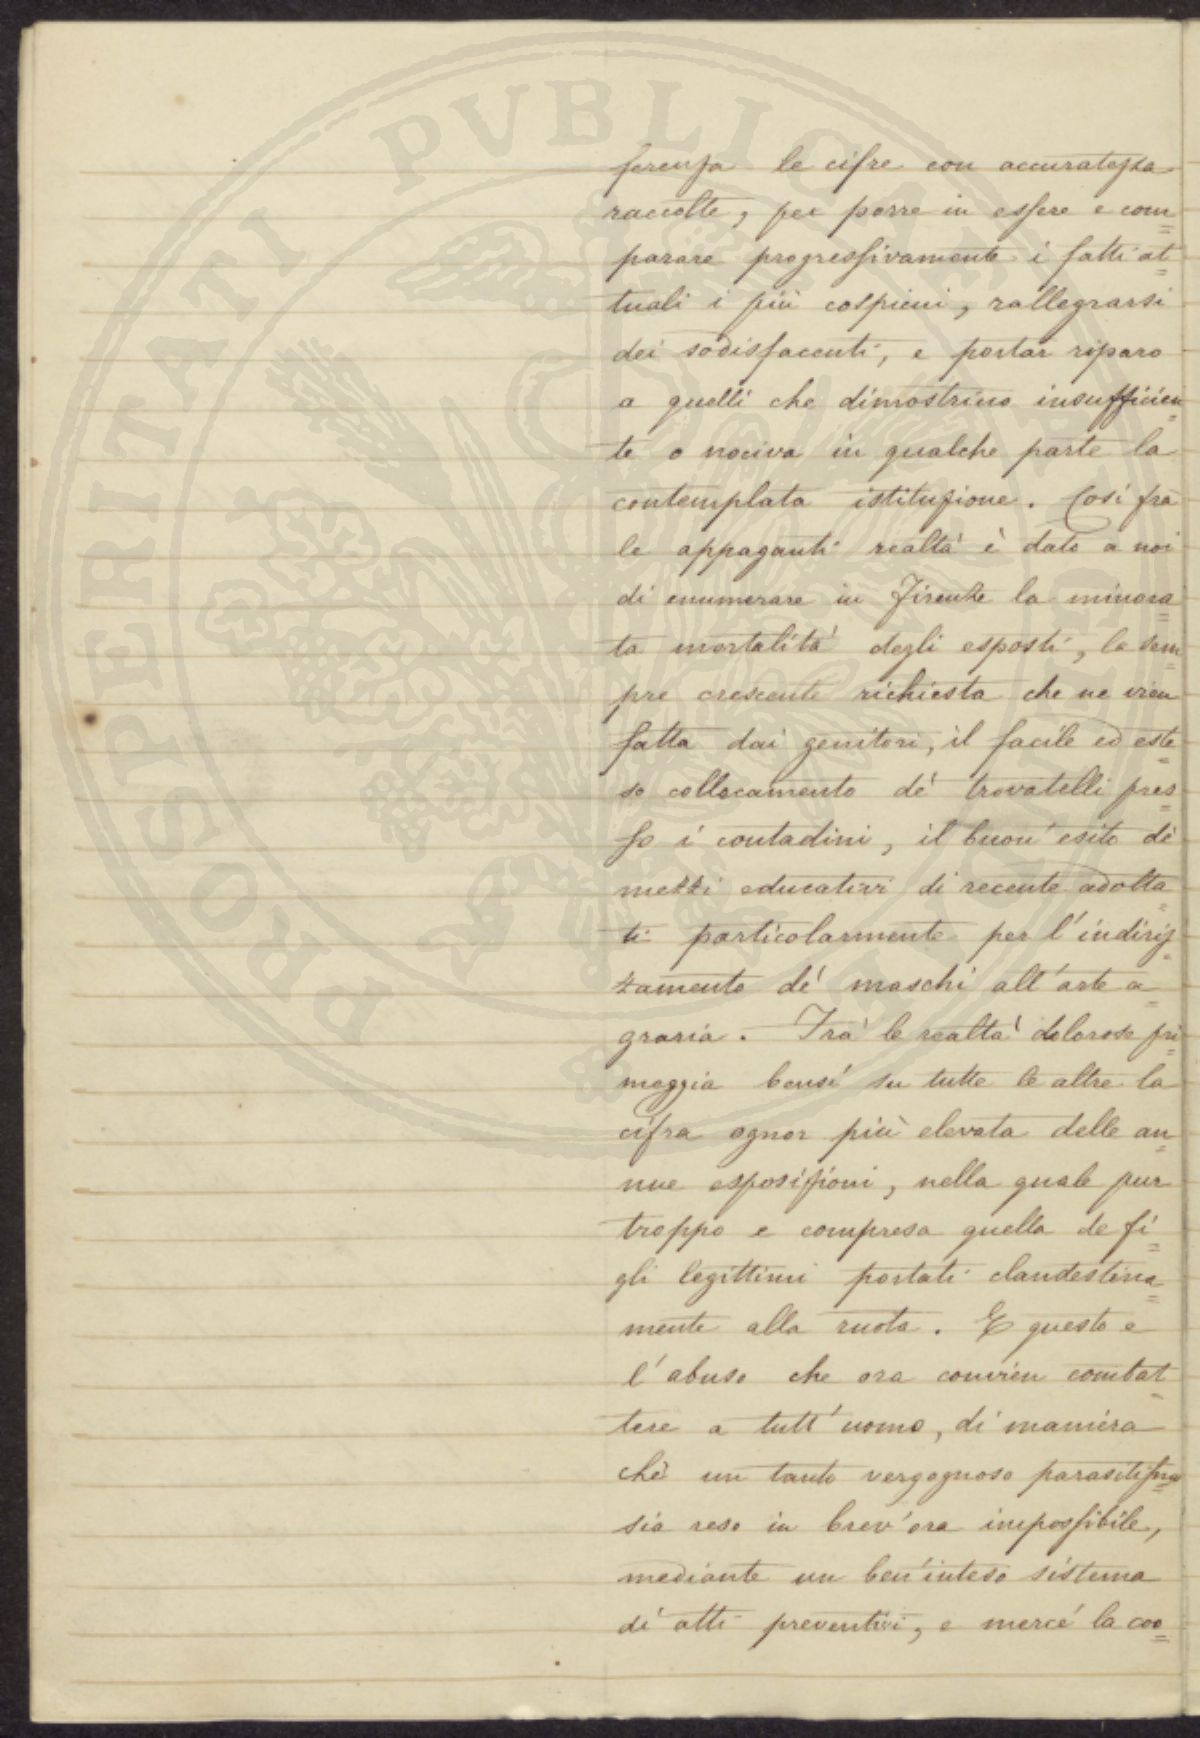 ferenza le cifre con accuratezza
raccolte, per porre in essere e com=
parare progressivamente i fatti at=
tuali i più cospicui, rallegrarsi
dei sodisfaccenti, e portar riparo
a quelli che dimostrino insufficien=
te o nociva in qualche parte la
contemplata istituzione. Così fra
le appaganti realtà è dato a noi
di enumerare in Firenze la minora=
ta mortalità degli esposti, la sem=
pre crescente richiesta che ne vien
fatta dai genitori, il facile ed este=
so collocamento de' trovatelli pres=
so i contadini, il buon' esito de'
mezzi educativi di recente adotta=
ti particolarmente per l'indiriz=
zamento de' maschi all'arte a=
graria. Frà le realtà dolorose pri=
meggia bensì su tutte le altre la
cifra ognor più elevata delle an=
nue esposizioni, nella quale pur
troppo e compresa quella de fi=
gli legittimi portati clandestina=
mente alla ruota. E questo e
l'abuso che ora convien combat=
tere a tutt'uomo, di maniera
chè un tanto vergognoso parasitismo
sia reso in brev'ora impossibile,
mediante un ben'inteso sistema
di atti preventivi, e mercé la coo=
PROSPERITATI PVBLICAE